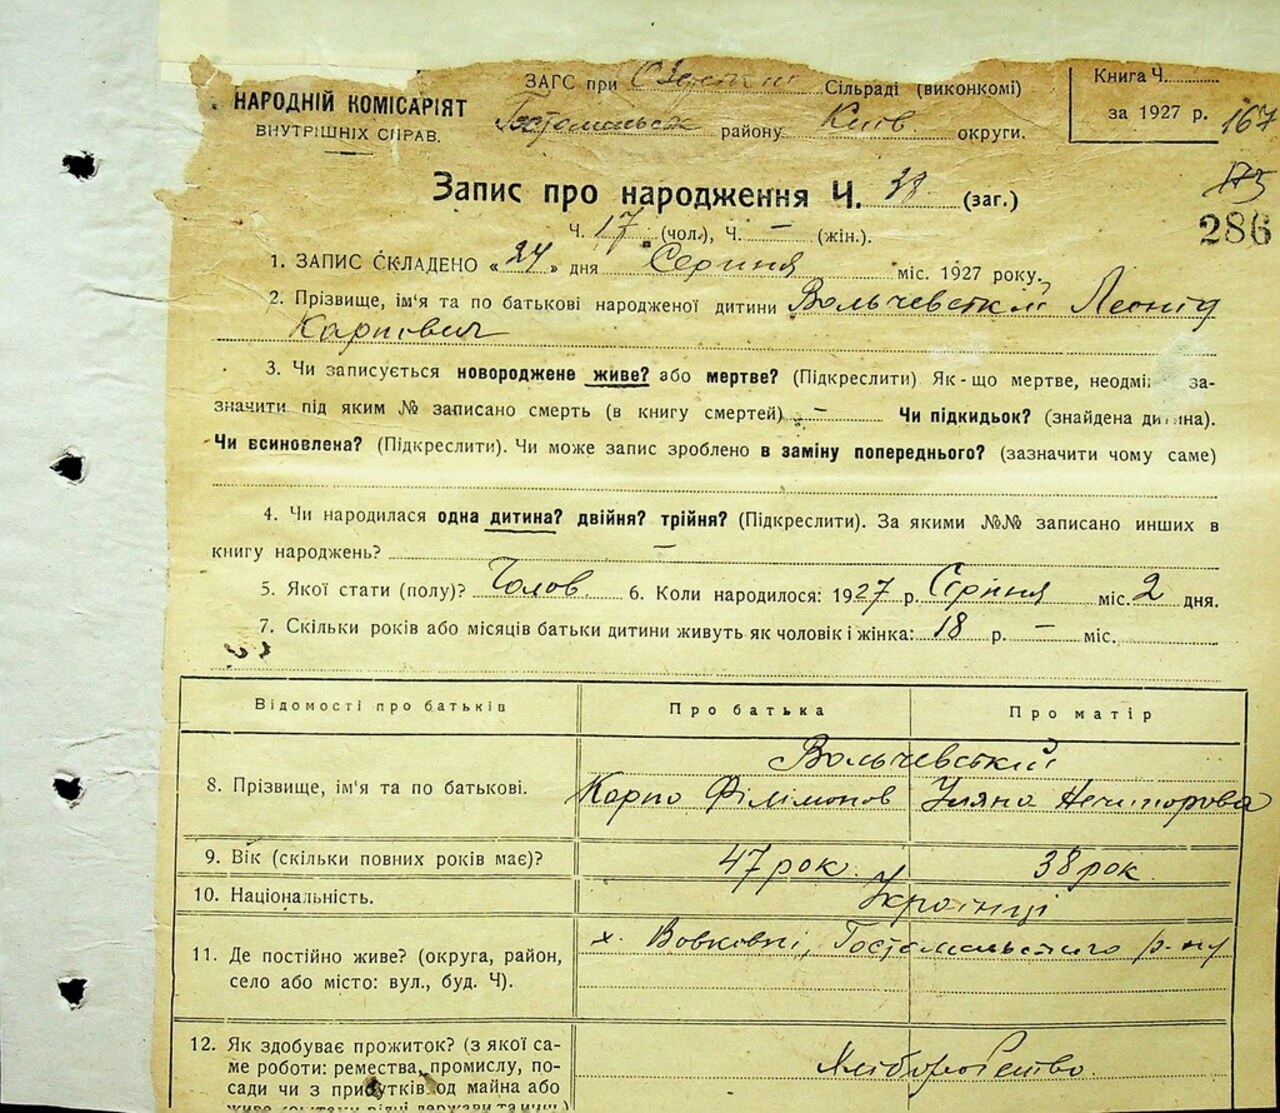 ЗАГС при Сільраді (виконкомі)
Книга Ч.
НАРОДНІЙ КОМІСАРІЯТ
ВНУТРІШНІХ СПРАВ.
Гостомельськ району Київ. округи.
за 1927 р. 167
Запис про народження Ч. 38 (заг.)
175
286
Ч. 17 (чол.), Ч. – (жін.).
1. ЗАПИС СКЛАДЕНО «24» дня Серпня міс. 1927 року.
2. Прізвище, ім'я та по батькові народженої дитини Вольчевській Леонід
Карпович
3. Чи записується новороджене живе? або мертве? (Підкреслити) Як-що мертве, неодмі за-
значити під яким № записано смерть (в книгу смертей) – Чи підкидьок? (знайдена дитина).
Чи всиновлена? (Підкреслити). Чи може запис зроблено в заміну попереднього? (зазначити чому саме)
4. Чи народилася одна дитина? двійня? трійня? (Підкреслити). За якими №№ записано инших в
книгу народжень? –
5. Якої стати (полу)? Чолов. 6. Коли народилося: 1927 р. Сірпня міс. 2 дня.
7. Скільки років або місяців батьки дитини живуть як чоловік і жінка: 18 р. – міс.
Відомості про батьків Про батька Про матір
Вольчевській
8. Прізвище, ім'я та по батькові. Карпо Філімонов Уляна Нечипорова
9. Вік (скільки повних років має)? 47 рок. 38 рок
10. Національність. Українці
11. Де постійно живе? (округа, район, х. Вовковні, Гостомельського р-ну
село або місто: вул., буд. Ч).
12. Як здобуває прожиток? (з якої са-
ме роботи: ремества, промислу, по- Хліборобство.
сади чи з прибутків од майна або
живе коштами рідні держави та инш.)